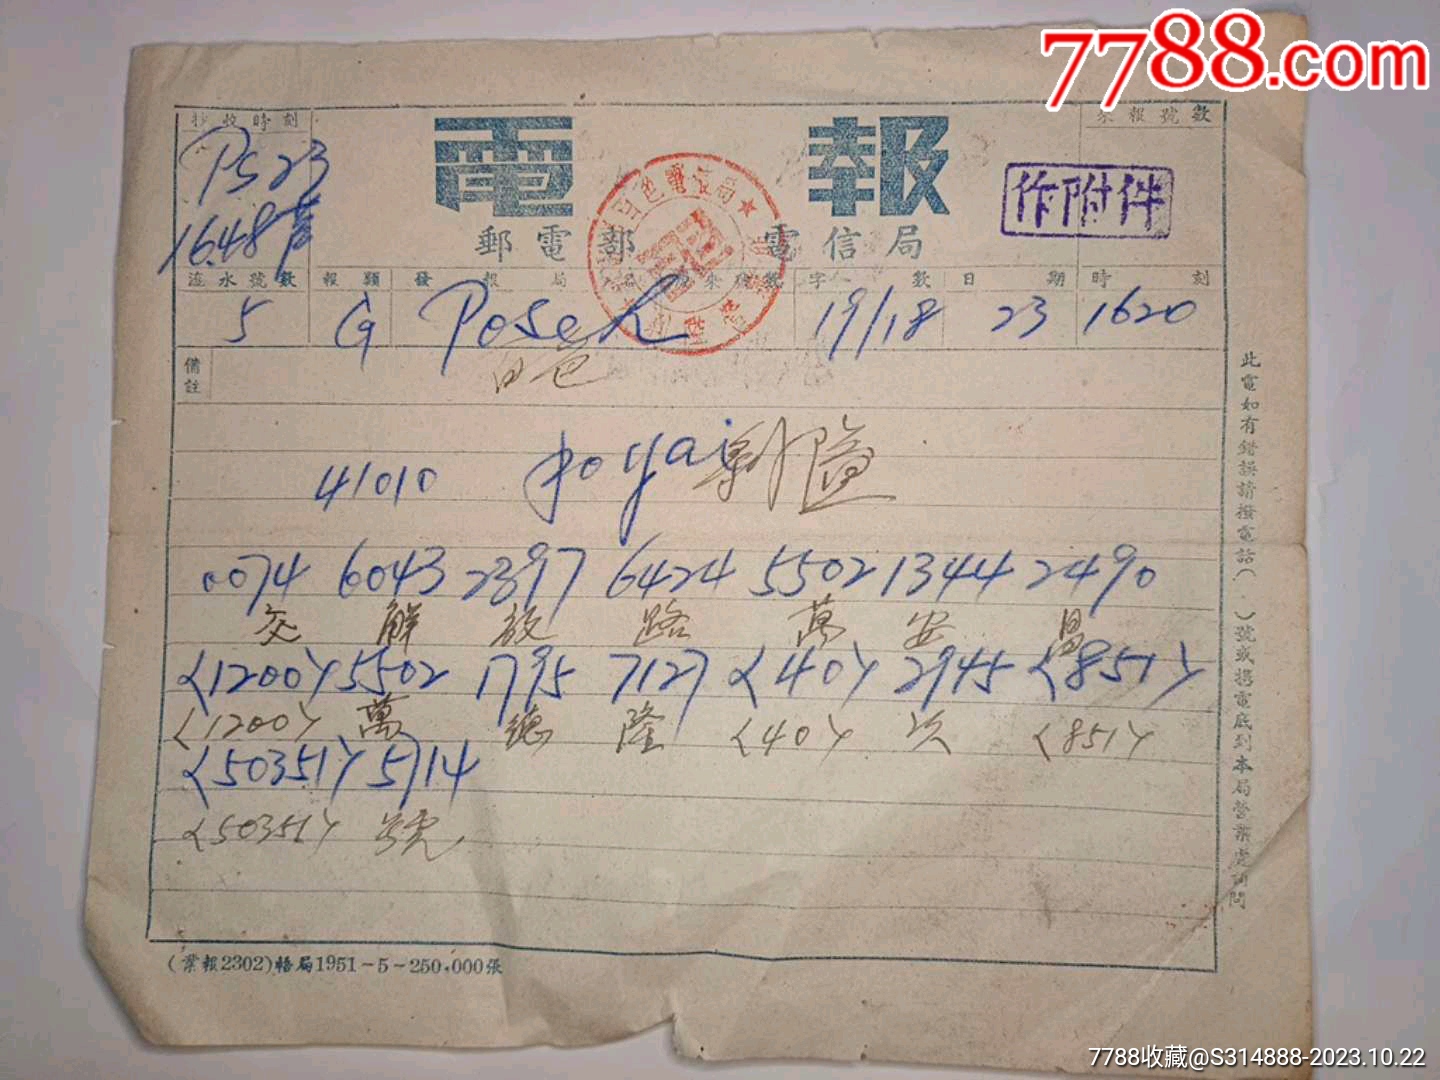 7788.com
抄收時刻
來報號數
電 報
PS23
1648
作附件
郵電部 電信局
流水號數 報類 發報局 字數 日期 時刻
5 G Poseh 19/18 23 1620
百色
備註
41010 poyai
0074 6043 2397 6424 5502 1344 2490
交 解 放 路 萬 安 昌
<1200> 5502 1795 7127 <40> 2945 <851>
<1200> 萬 德 隆 <40> 次 <851>
<50351> 5714
<50351> 號
此電如有錯誤請撥電話( )號或攜電底到本局營業處詢問
(業報2302) 1951-5-250.000張
7788收藏@S314888-2023.10.22